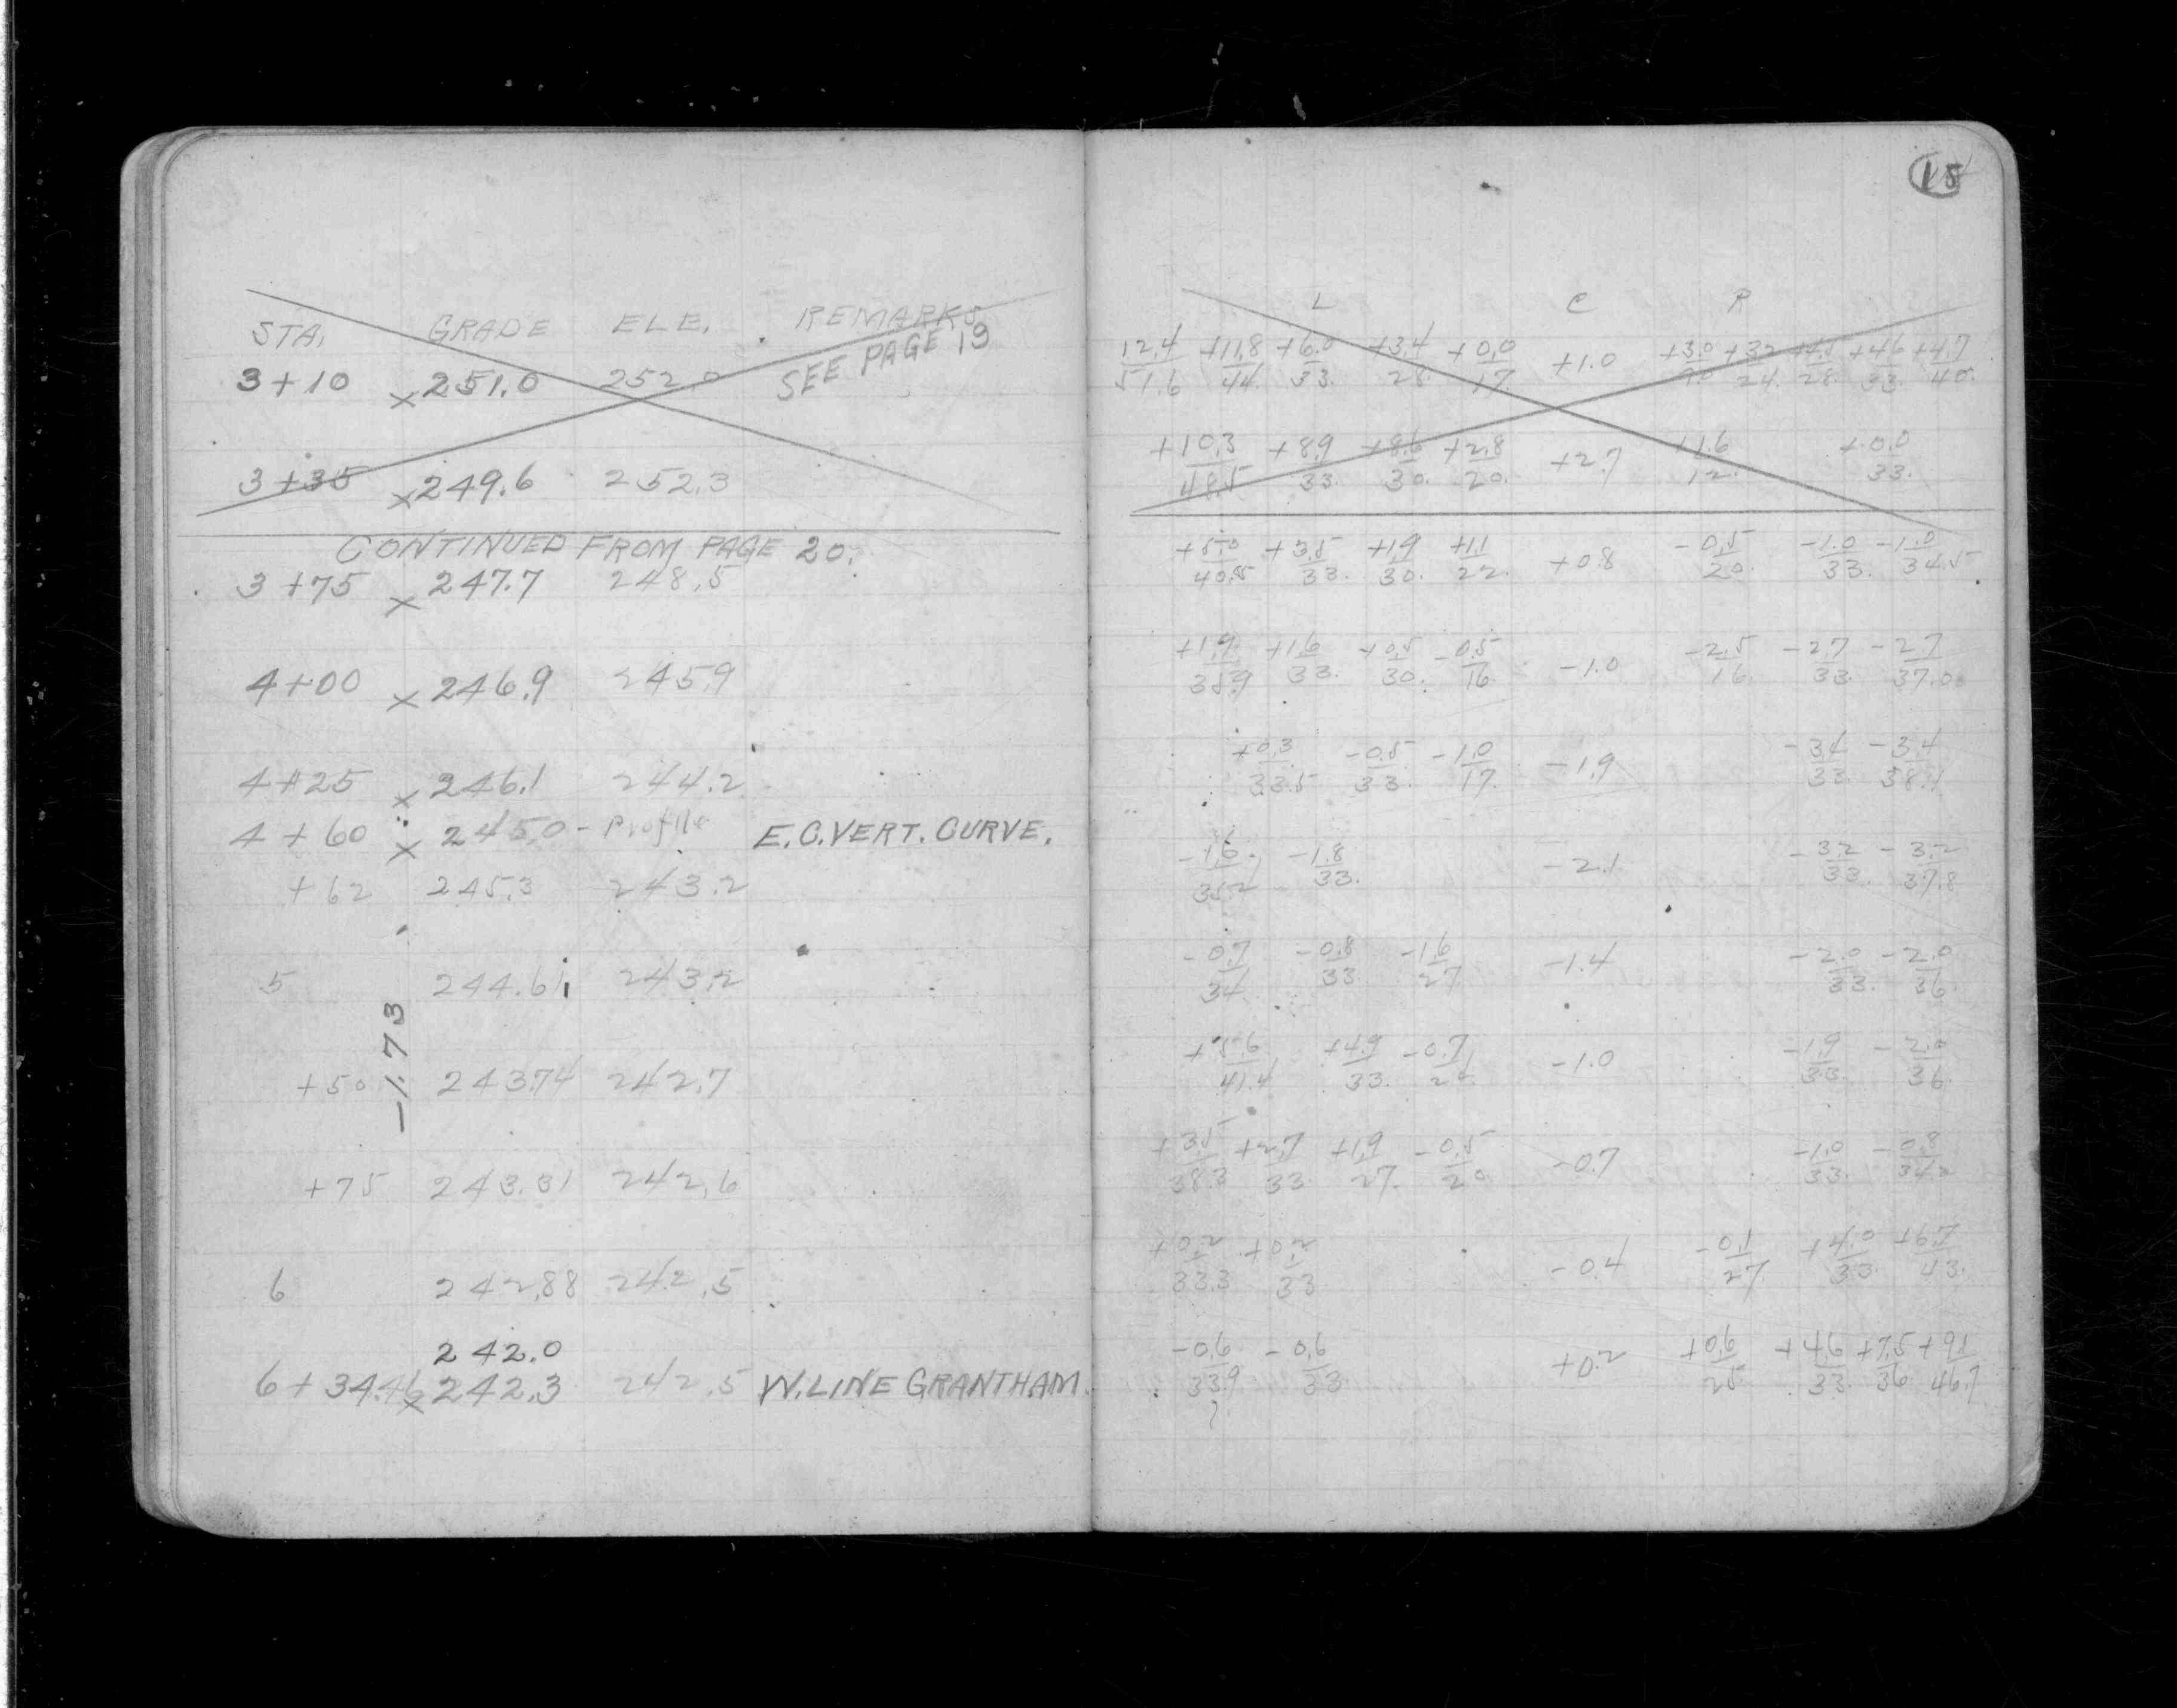 STA. GRADE ELE. REMARKS
3+10 x 251.0 252.0 SEE PAGE 19
3+35 x 249.6 252.3
CONTINUED FROM PAGE 20.
3+75 x 247.7 248.5
4+00 x 246.9 245.9
4+25 x 246.1 244.2
4+60 x 245.0 - Profile E.C. VERT. CURVE.
+62 245.3 243.2
5 244.61 243.2
-1.73
+50 243.74 242.7
+75 243.31 242.6
6 242.88 242.5
242.0
6+34.46 x 242.3 242.5 W. LINE GRANTHAM.
15
L C R
12.4 +11.8 +6.0 +3.4 +0.0 +1.0 +3.0 +3.2 +4.6 +4.7
51.6 44. 33. 28. 17. 24. 28. 33. 40.
+10.3 +8.9 +8.6 +2.8 +2.7 +1.6 +0.0
48.5 33. 30. 20. 12. 33.
+5.0 +3.5 +1.9 +1.1 +0.8 -0.5 -1.0 -1.0
40.5 33. 30. 22. 20. 33. 34.5
+1.9 +1.6 +0.5 -0.5 -1.0 -2.5 -2.7 -2.7
35.9 33. 30. 16. 16. 33. 37.0
+0.3 -0.5 -1.0 -1.9 -3.4 -3.4
33.5 33. 17. 33. 38.1
-1.6 -1.8 -2.1 -3.2 -3.2
35.2 33. 33. 37.8
-0.7 -0.8 -1.6 -1.4 -2.0 -2.0
34 33 27 33. 36.
+5.6 +4.9 -0.7 -1.0 -1.9 -2.0
41.4 33. 33 36.
+3.5 +2.7 +1.9 -0.5 -0.7 -1.0 -0.8
38.3 33 27. 20 33. 34.2
+0.2 +0.2 -0.4 -0.1 +4.0 +6.7
33.3 33 27 33. 43.
-0.6 -0.6 +0.2 +0.6 +4.6 +7.5 +9.1
33.9 33. 25. 33. 36 46.7
?